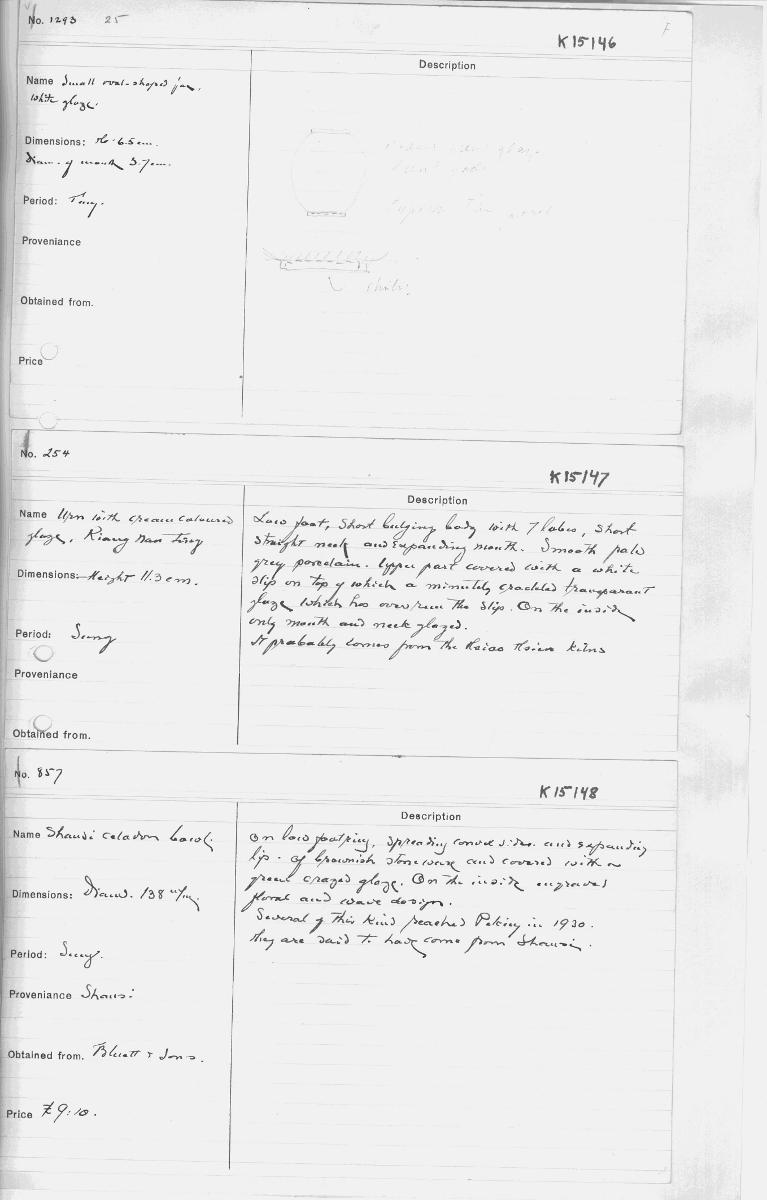 No. 1293 25
K15146
F
Description
Name Small oval-shaped jar.
white glaze.
Dimensions: H. 6.5 cm.
Diam. of mouth 3.7 cm.
Period: Tang.
Proveniance
Obtained from.
Price
No. 254
K15147
Description
Name Urn with cream coloured
glaze, Kiang nan ting
Dimensions: Height 11.3 cm.
Period: Sung
Proveniance
Obtained from.
Low foot, short bulging body with 7 lobes, short
straight neck and expanding mouth. Smooth pale
grey porcelain. Upper part covered with a white
slip on top of which a minutely crackled transparant
glaze which has overrun the slip. On the inside
only mouth and neck glazed.
It probably comes from the Hsiao Hsien kilns
No. 857
K15148
Description
Name Shansi celadon bowl.
Dimensions: Diam. 138 m/m.
Period: Sung.
Proveniance Shansi
Obtained from. Bluett & Sons.
Price £9:10.
On low footring, spreading convex sides and expanding
lip. Of brownish stoneware and covered with a
green crazed glaze. On the inside engraved
floral and wave design.
Several of this kind reached Peking in 1930.
They are said to have come from Shansi.